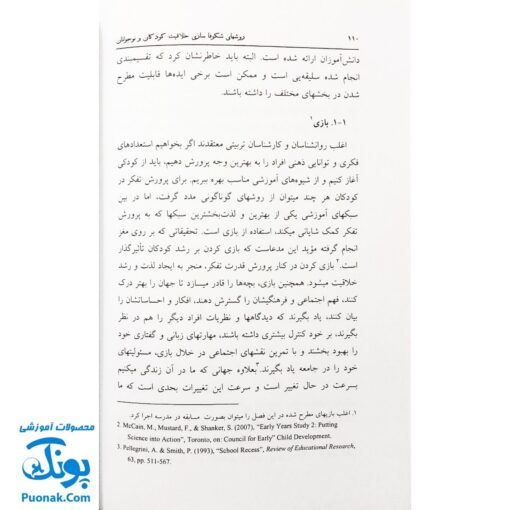 ۱۱۰ روشهای شکوفا سازی خلاقیت کودکان و نوجوانان
دانش‌آموزان ارائه شده است. البته باید خاطرنشان کرد که تقسیم‌بندی
انجام شده سلیقه‌یی است و ممکن است برخی ایده‌ها قابلیت مطرح
شدن در بخشهای مختلف را داشته باشند.
۱-۱. بازی۱
اغلب روانشناسان و کارشناسان تربیتی معتقدند اگر بخواهیم استعدادهای
فکری و توانایی ذهنی افراد را به بهترین وجه پرورش دهیم، باید از کودکی
آغاز کنیم و از شیوه‌های آموزشی مناسب بهره ببریم. برای پرورش تفکر در
کودکان هر چند میتوان از روشهای گوناگونی مدد گرفت، اما در بین
سبکهای آموزشی یکی از بهترین و لذت‌بخشترین سبکها که به پرورش
تفکر کمک شایانی میکند، استفاده از بازی است. تحقیقاتی که بر روی مغز
انجام گرفته مؤید این مدعاست که بازی کردن بر رشد کودکان تأثیرگذار
است.۲ بازی کردن در کنار پرورش قدرت تفکر، منجر به ایجاد لذت و رشد
خلاقیت میشود. همچنین بازی، بچه‌ها را قادر میسازد تا جهان را بهتر درک
کنند، فهم اجتماعی و فرهنگیشان را گسترش دهند، افکار و احساساتشان را
بیان کنند، یاد بگیرند که دیدگاهها و نظریات افراد دیگر را هم در نظر
بگیرند، بر خود کنترل بیشتری داشته باشند، مهارتهای زبانی و گفتاری خود
را بهبود بخشند و با تمرین نقشهای اجتماعی در خلال بازی، مسئولیتهای
خود را در جامعه یاد بگیرند.۳ بعلاوه جهانی که ما در آن زندگی میکنیم
بسرعت در حال تغییر است و سرعت این تغییرات بحدی است که ما
۱. اغلب بازیهای مطرح شده در این فصل را میتوان بصورت مسابقه در مدرسه اجرا کرد.
2. McCain, M., Mustard, F., & Shanker, S. (2007), "Early Years Study 2: Putting
Science into Action", Toronto, on: Council for Early" Child Development.
3. Pellegrini, A. & Smith, P. (1993), "School Recess", Review of Educational Research,
63, pp. 511-567.
محصولات آموزشی
پونک
Puonak.Com